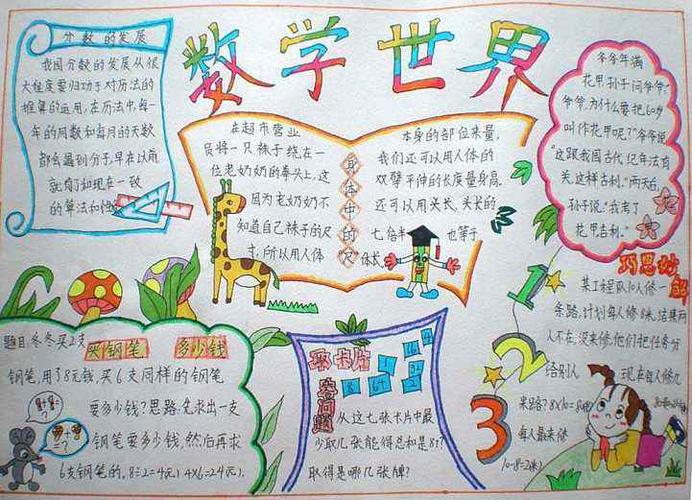 数学世界
分数的发展
我国分数的发展从很
大程度要归功于对历法的
推算的运用,在历法中,每一
年的周数和每月的天数
都会遇到分子,早在以前
就有了和现在一致
的算法和性
在超市营业
员将一只袜子绕在一
位老奶奶的拳头上,这
因为老奶奶不
知道自己袜子的尺
寸,所以用人体
身体中的尺
本身的部位来量,
我们还可以用人体的
双臂平伸的长度量身高
还可以用头长,头长的
七倍半 也等于
体长
爷爷年满
花甲,孙子问爷爷:“
爷爷,为什么要把60岁
叫作花甲呢?”爷爷说:
“这跟我国古代纪年法有
关,这样古利。”两天后,
孙子说:“我考了
花甲吉利.”
题目:冬冬买2支
买钢笔 多少钱
钢笔,用了8元钱,买6支同样的钢笔
要多少钱?思路:先求出一支
钢笔要多少钱,然后再求
6支钢笔的.8÷2=4(元) 4×6=24(元).
取卡片
答问题
8 64 2
从这七张卡片中最
少取几张能得总和是87?
取得是哪几张牌?
巧思妙解
1
2
3
某工程队10人修一
条路,计划每人修8米,结果两
人不在,没来修,他们把任务分
给别人 现在每人修几
米路? 8×10=80(米)
每人最来修
10-8=2(米)